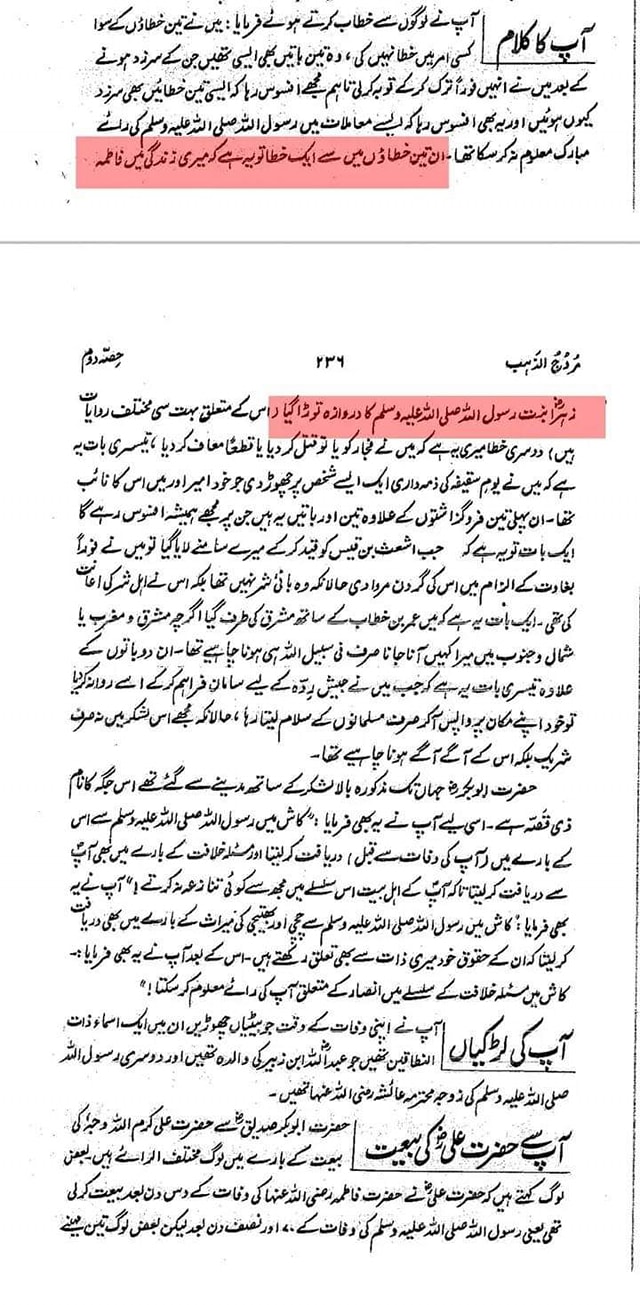 آپ کا کلام
آپ نے لوگوں سے خطاب کرتے ہوئے فرمایا: میں نے تین خطاؤں کے سوا
کسی امر میں خطا نہیں کی، وہ تین باتیں بھی ایسی تھیں جن کے سرزد ہونے
کے بعد میں نے انہیں فوراً ترک کر کے توبہ کرلی تاہم مجھے افسوس رہا کہ ایسی تین خطائیں بھی سرزد
کیوں ہوئیں اور یہ بھی افسوس رہا کہ ایسے معاملات میں رسول اللہ صلی اللہ علیہ وسلم کی رائے
مبارک معلوم نہ کر سکا تھا۔ ان تین خطاؤں میں سے ایک خطا تو یہ ہے کہ میری زندگی میں فاطمہ
مروج الذہب ۲۳۶ حصہ دوم
زہراؓ بنت رسول اللہ صلی اللہ علیہ وسلم کا دروازہ توڑا گیا (اس کے متعلق بہت سی مختلف روایات
ہیں) دوسری خطا میری یہ ہے کہ میں نے فجار کو یا تو قتل کر دیا یا قطعاً معاف کر دیا، تیسری بات یہ
ہے کہ میں نے یوم سقیفہ کی ذمہ داری ایک ایسے شخص پر چھوڑ دی جو خود امیر اور میں اس کا نائب
تھا۔ ان پہلی تین فروگزاشتوں کے علاوہ تین اور باتیں یہ ہیں جن پر مجھے ہمیشہ افسوس رہے گا
ایک بات تو یہ ہے کہ جب اشعث بن قیس کو قید کر کے میرے سامنے لایا گیا تو میں نے فوراً
بغاوت کے الزام میں اس کی گردن مروا دی حالانکہ وہ بانیٔ شر نہیں تھا بلکہ اس نے اہل شر کی اعانت
کی تھی۔ ایک بات یہ ہے کہ میں عمر بن خطاب کے ساتھ مشرق کی طرف گیا اگرچہ مشرق و مغرب یا
شمال و جنوب میں میرا کہیں آنا جانا صرف فی سبیل اللہ ہی ہونا چاہیے تھا۔ ان دو باتوں کے
علاوہ تیسری بات یہ ہے کہ جب میں نے جیش ردّہ کے لیے سامان فراہم کر کے اسے روانہ کر دیا
تو خود اپنے مکان پر واپس آکر صرف مسلمانوں کے سلام لیتا رہا، حالانکہ مجھے اس لشکر میں نہ صرف
شریک بلکہ اس کے آگے آگے ہونا چاہیے تھا۔
حضرت ابوبکرؓ جہاں تک مذکورہ بالا لشکر کے ساتھ مدینے سے گئے تھے اس جگہ کا نام
ذی قصّہ ہے۔ اسی لیے آپ نے یہ بھی فرمایا: "کاش میں رسول اللہ صلی اللہ علیہ وسلم سے اس
کے بارے میں (آپ کی وفات سے قبل) دریافت کرلیتا اور مسئلہ خلافت کے بارے میں بھی آپ
سے دریافت کرلیتا تاکہ آپ کے اہل بیت اس سلسلے میں مجھ سے کوئی تنازعہ نہ کرتے!" آپ نے یہ
بھی فرمایا: "کاش میں رسول اللہ صلی اللہ علیہ وسلم سے چچی اور بھتیجی کی میراث کے بارے میں بھی دریافت
کرلیتا کہ ان کے حقوق خود میری ذات سے بھی تعلق رکھتے ہیں۔ اس کے بعد آپ نے یہ بھی فرمایا:۔
کاش میں مسئلہ خلافت کے سلسلے میں انصار کے متعلق آپ کی رائے معلوم کر سکتا!"
آپ کی لڑکیاں
آپ نے اپنی وفات کے وقت جو بیٹیاں چھوڑیں ان میں ایک اسماء ذات
النطاقین تھیں جو عبداللہ ابن زبیر کی والدہ تھیں اور دوسری رسول اللہ
صلی اللہ علیہ وسلم کی زوجہ محترمہ عائشہ رضی اللہ عنہا تھیں۔
آپ سے حضرت علیؓ کی بیعت
حضرت ابوبکر صدیقؓ سے حضرت علی کرم اللہ وجہہٗ کی
بیعت کے بارے میں لوگ مختلف الرائے ہیں بعض
لوگ کہتے ہیں کہ حضرت علیؓ نے حضرت فاطمہ رضی اللہ عنہا کی وفات کے دس دن بعد بیعت کرلی
تھی یعنی رسول اللہ صلی اللہ علیہ وسلم کی وفات کے ۷۰ اور نصف دن بعد لیکن بعض لوگ تین مہینے